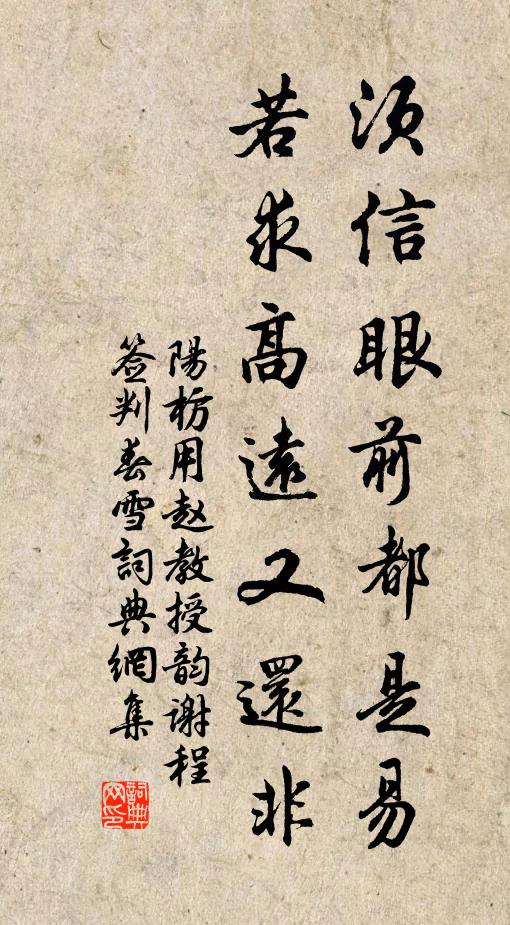 须信眼前都是易
若求高遠又還非
陽枋用赵教授韵謝程
签判春雪詞典網集
詞典
网印